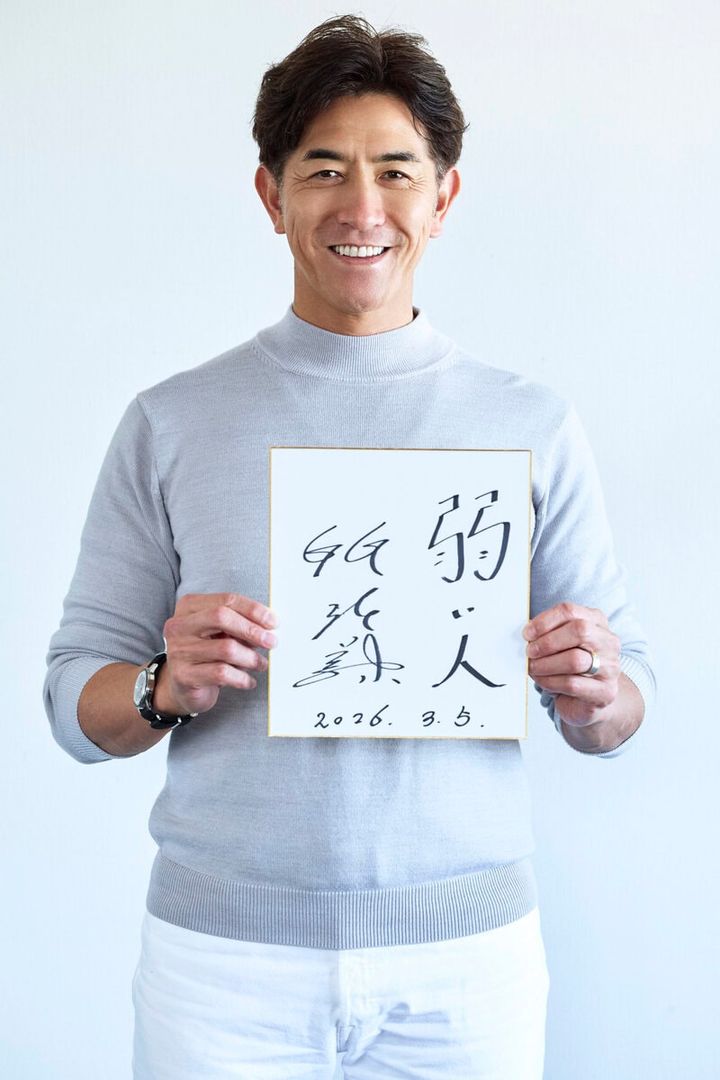 弱い人
GG
2026. 3. 5.